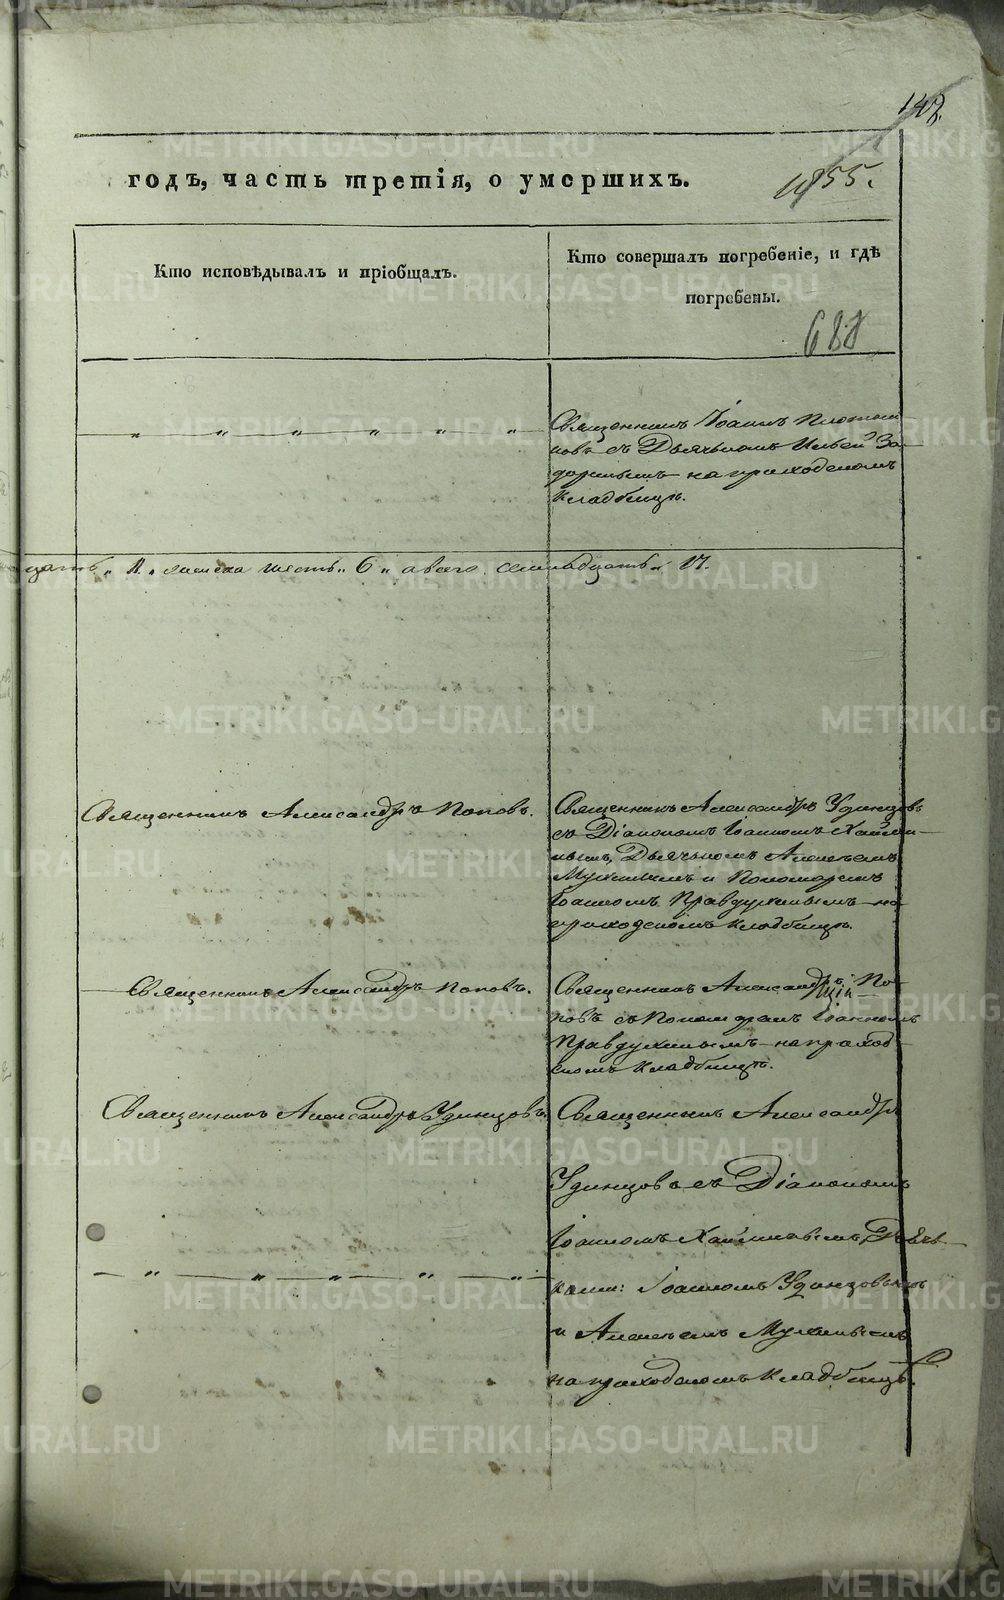 148.
годъ, часть третія, о умершихъ.
1855.
Кто исповѣдывалъ и пріобщалъ.
Кто совершалъ погребеніе, и гдѣ
погребены.
688
Священникъ Іоаннъ Плотни
ковъ съ Дьячкомъ Ильей За
доринымъ на приходскомъ
кладбищѣ.
цать „ 11. „ женска шесть „ 6 „ а всего семнадцать „ 17.
Священникъ Александръ Поповъ.
Священникъ Александръ Удинцовъ
съ Діакономъ Іоанномъ Хайми
нымъ, Дьячкомъ Алексѣемъ
Мухинымъ и Пономаремъ
Іоанномъ Правдухинымъ на
приходскомъ кладбищѣ.
Священникъ Александръ Поповъ.
Священникъ Александръ По
повъ съ Пономаремъ Іоанномъ
Правдухинымъ на приход
скомъ кладбищѣ.
Священникъ Александръ Удинцовъ.
Священникъ Александръ
Удинцовъ съ Діакономъ
Іоанномъ Дьяч
ками: Іоанномъ Удинцовымъ
и Алексѣемъ Мухинымъ
на приходскомъ кладбищѣ.
METRIKI.GASO-URAL.RU